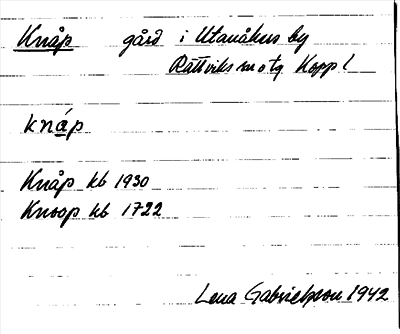 Knåp gård i Utanåkers by
Rättviks sn o tg Kopp l
knáp
Knåp kb 1930
Knoop kb 1722
Lena Gabrielsson 1942